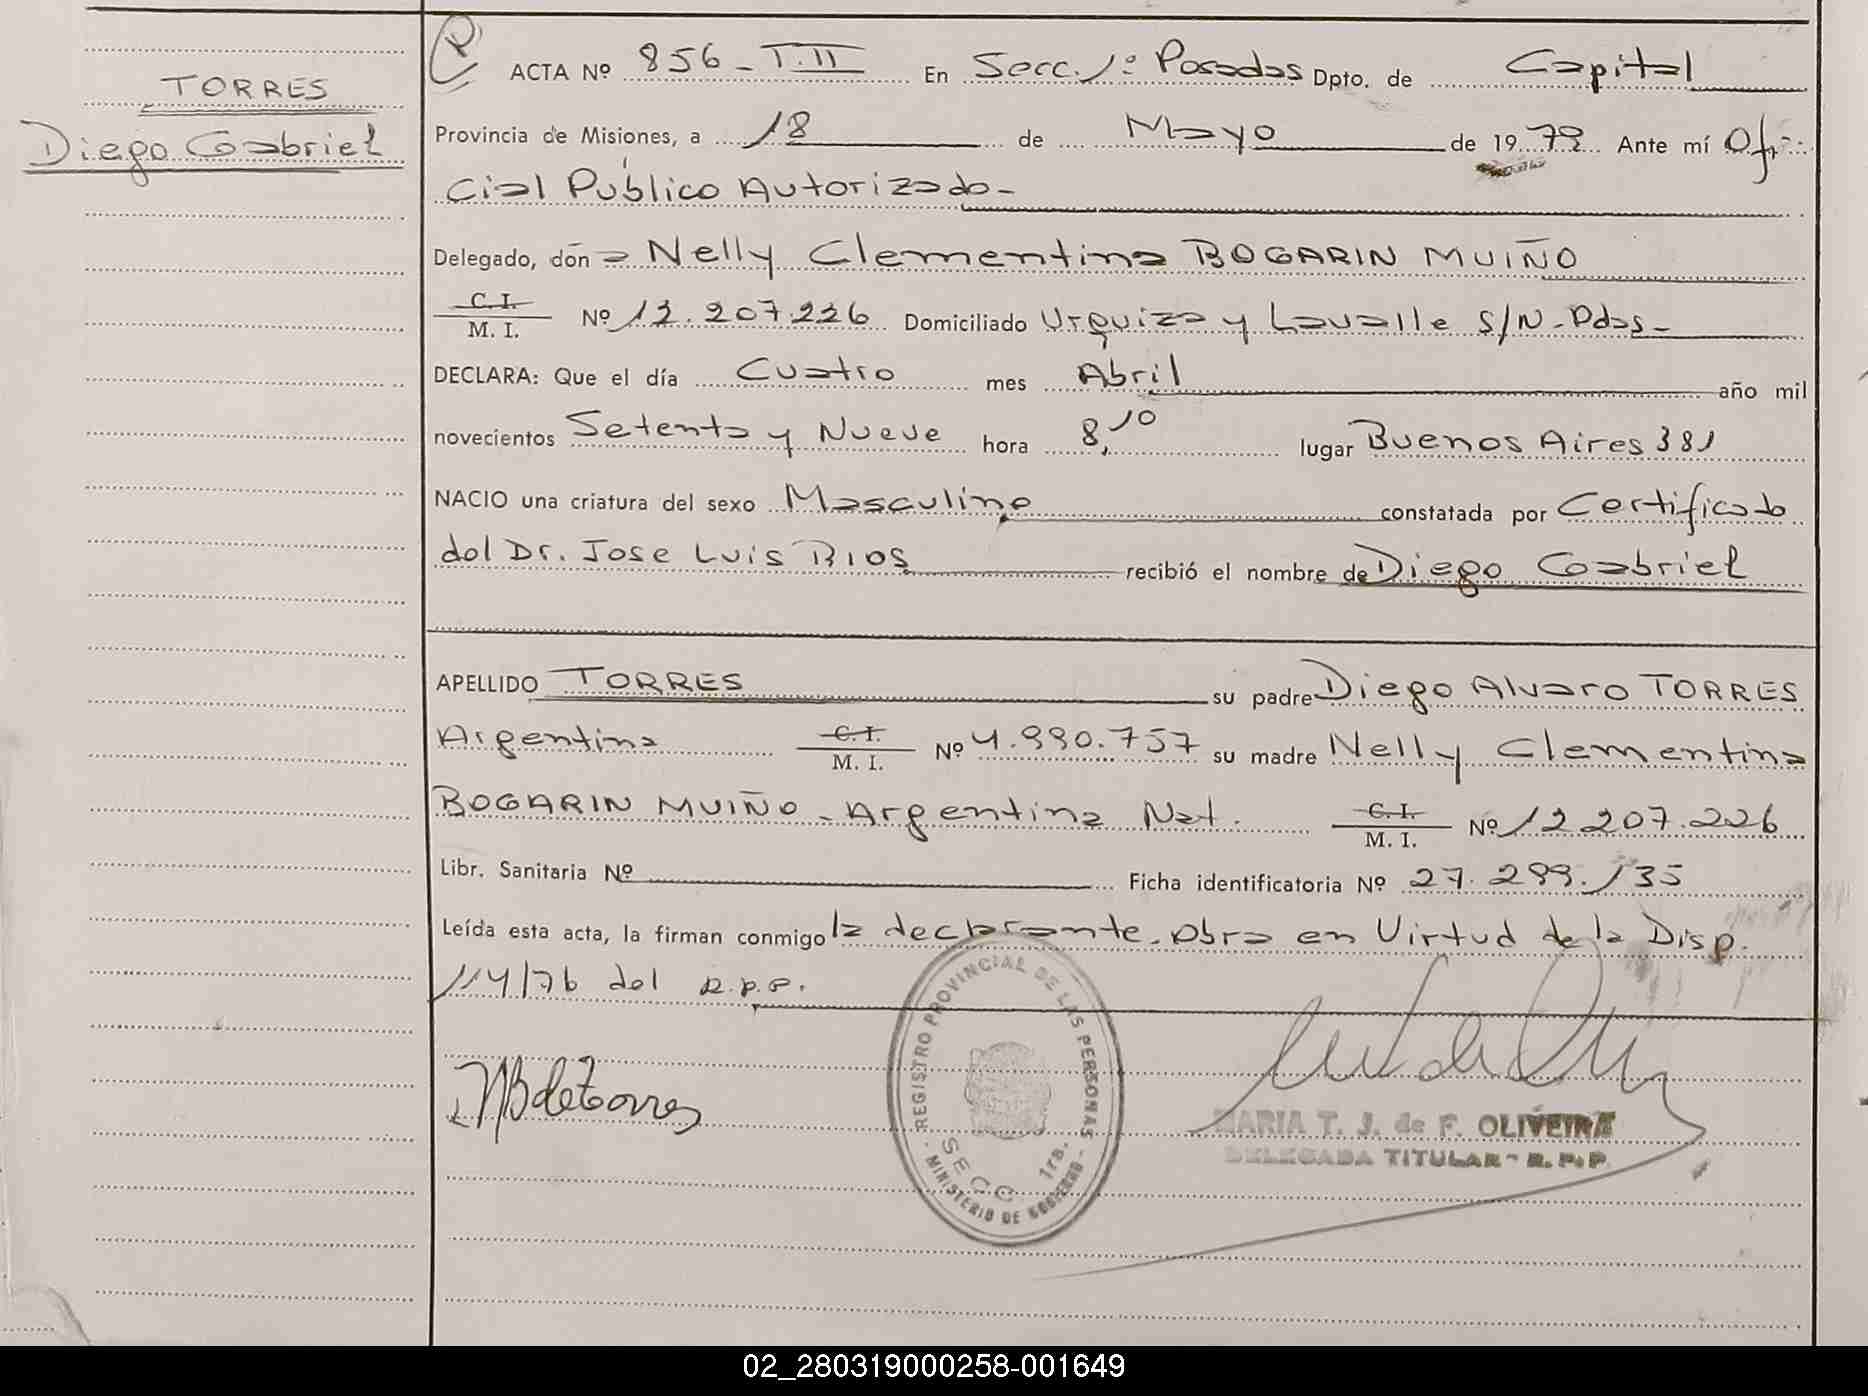 TORRES
Diego Gabriel
ACTA Nº 856 - T.II En Secc. 1º Posadas Dpto. de Capital
Provincia de Misiones, a 18 de Mayo de 1979 Ante mí Ofi-
cial Público Autorizado-
Delegado, don a Nelly Clementina BOGARIN MUIÑO
C. I.
M. I. Nº 12.207.226 Domiciliado Urquiza y Lavalle S/N - Pdas-
DECLARA: Que el día Cuatro mes Abril año mil
novecientos Setenta y Nueve hora 8,10 lugar Buenos Aires 381
NACIO una criatura del sexo Masculino constatada por Certificado
del Dr. Jose Luis RIOS recibió el nombre de Diego Gabriel
APELLIDO TORRES su padre Diego Alvaro TORRES
Argentina C. I.
M. I. Nº 4.990.757 su madre Nelly Clementina
BOGARIN MUIÑO - Argentina Nat. C. I.
M. I. Nº 12 207.226
Libr. Sanitaria Nº Ficha identificatoria Nº 27.299.135
Leída esta acta, la firman conmigo la declarante. Obra en Virtud de la Disp.
114/76 del R.P.P.
NB de Torres
REGISTRO PROVINCIAL DE LAS PERSONAS
SECC 1ra.
- MINISTERIO DE GOBIERNO -
MARIA T. J. de F. OLIVEIRA
DELEGADA TITULAR - R. P. P.
02_280319000258-001649